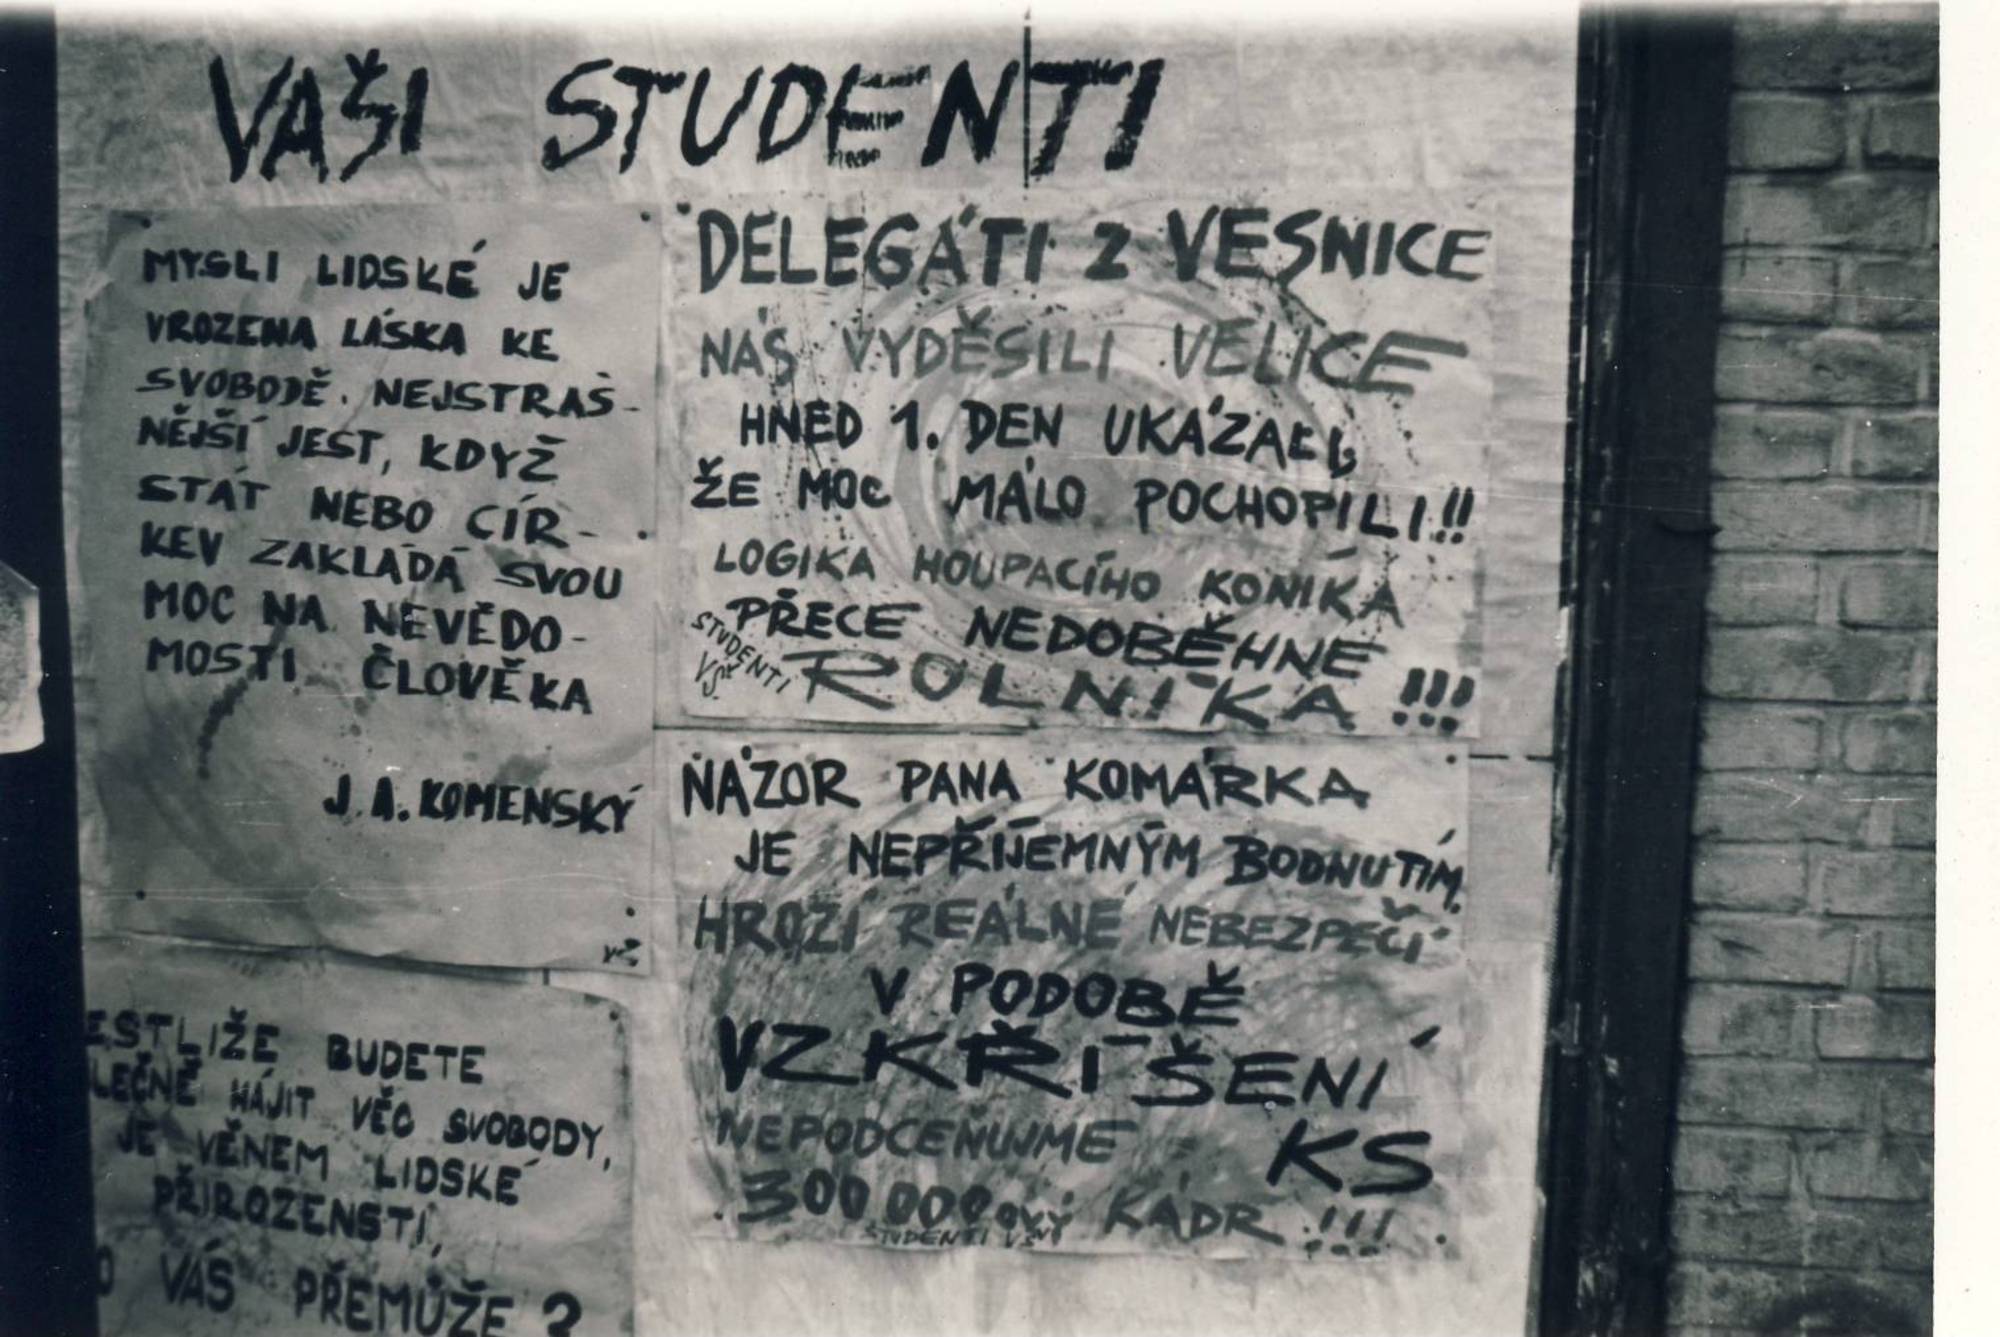 VAŠI STUDENTI
MYSLI LIDSKÉ JE
VROZENA LÁSKA KE
SVOBODĚ. NEJSTRAŠ-
NĚJŠÍ JEST, KDYŽ
STÁT NEBO CÍR-
KEV ZAKLÁDÁ SVOU
MOC NA NEVĚDO-
MOSTI ČLOVĚKA
J. A. KOMENSKÝ
ESTLIŽE BUDETE
LEČNĚ HÁJIT VĚC SVOBODY,
JE VĚNEM LIDSKÉ
PŘIROZENSTI,
O VÁS PŘEMŮŽE?
DELEGÁTI Z VESNICE
NÁS VYDĚSILI VELICE
HNED 1. DEN UKÁZALI,
ŽE MOC MÁLO POCHOPILI!!
LOGIKA HOUPACÍHO KONÍKA
PŘECE NEDOBĚHNE
ROLNÍKA!!!
STUDENTI
VŠ
NÁZOR PANA KOMÁRKA
JE NEPŘÍJEMNÝM BODNUTÍM.
HROZÍ REÁLNÉ NEBEZPEČÍ
V PODOBĚ
VZKŘÍŠENÍ
NEPODCEŇUJME - KS
300 000OVÝ KÁDR!!!
STUDENTI